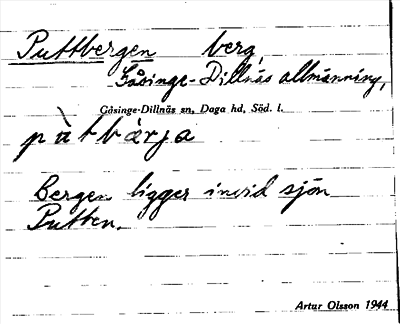 Puttbergen berg,
Gåsinge-Dillnäs allmänning,
Gåsinge-Dillnäs sn, Daga hd, Söd. l.
pàtbærja
Bergen ligger invid sjön
Putten.
Artur Olsson 1944